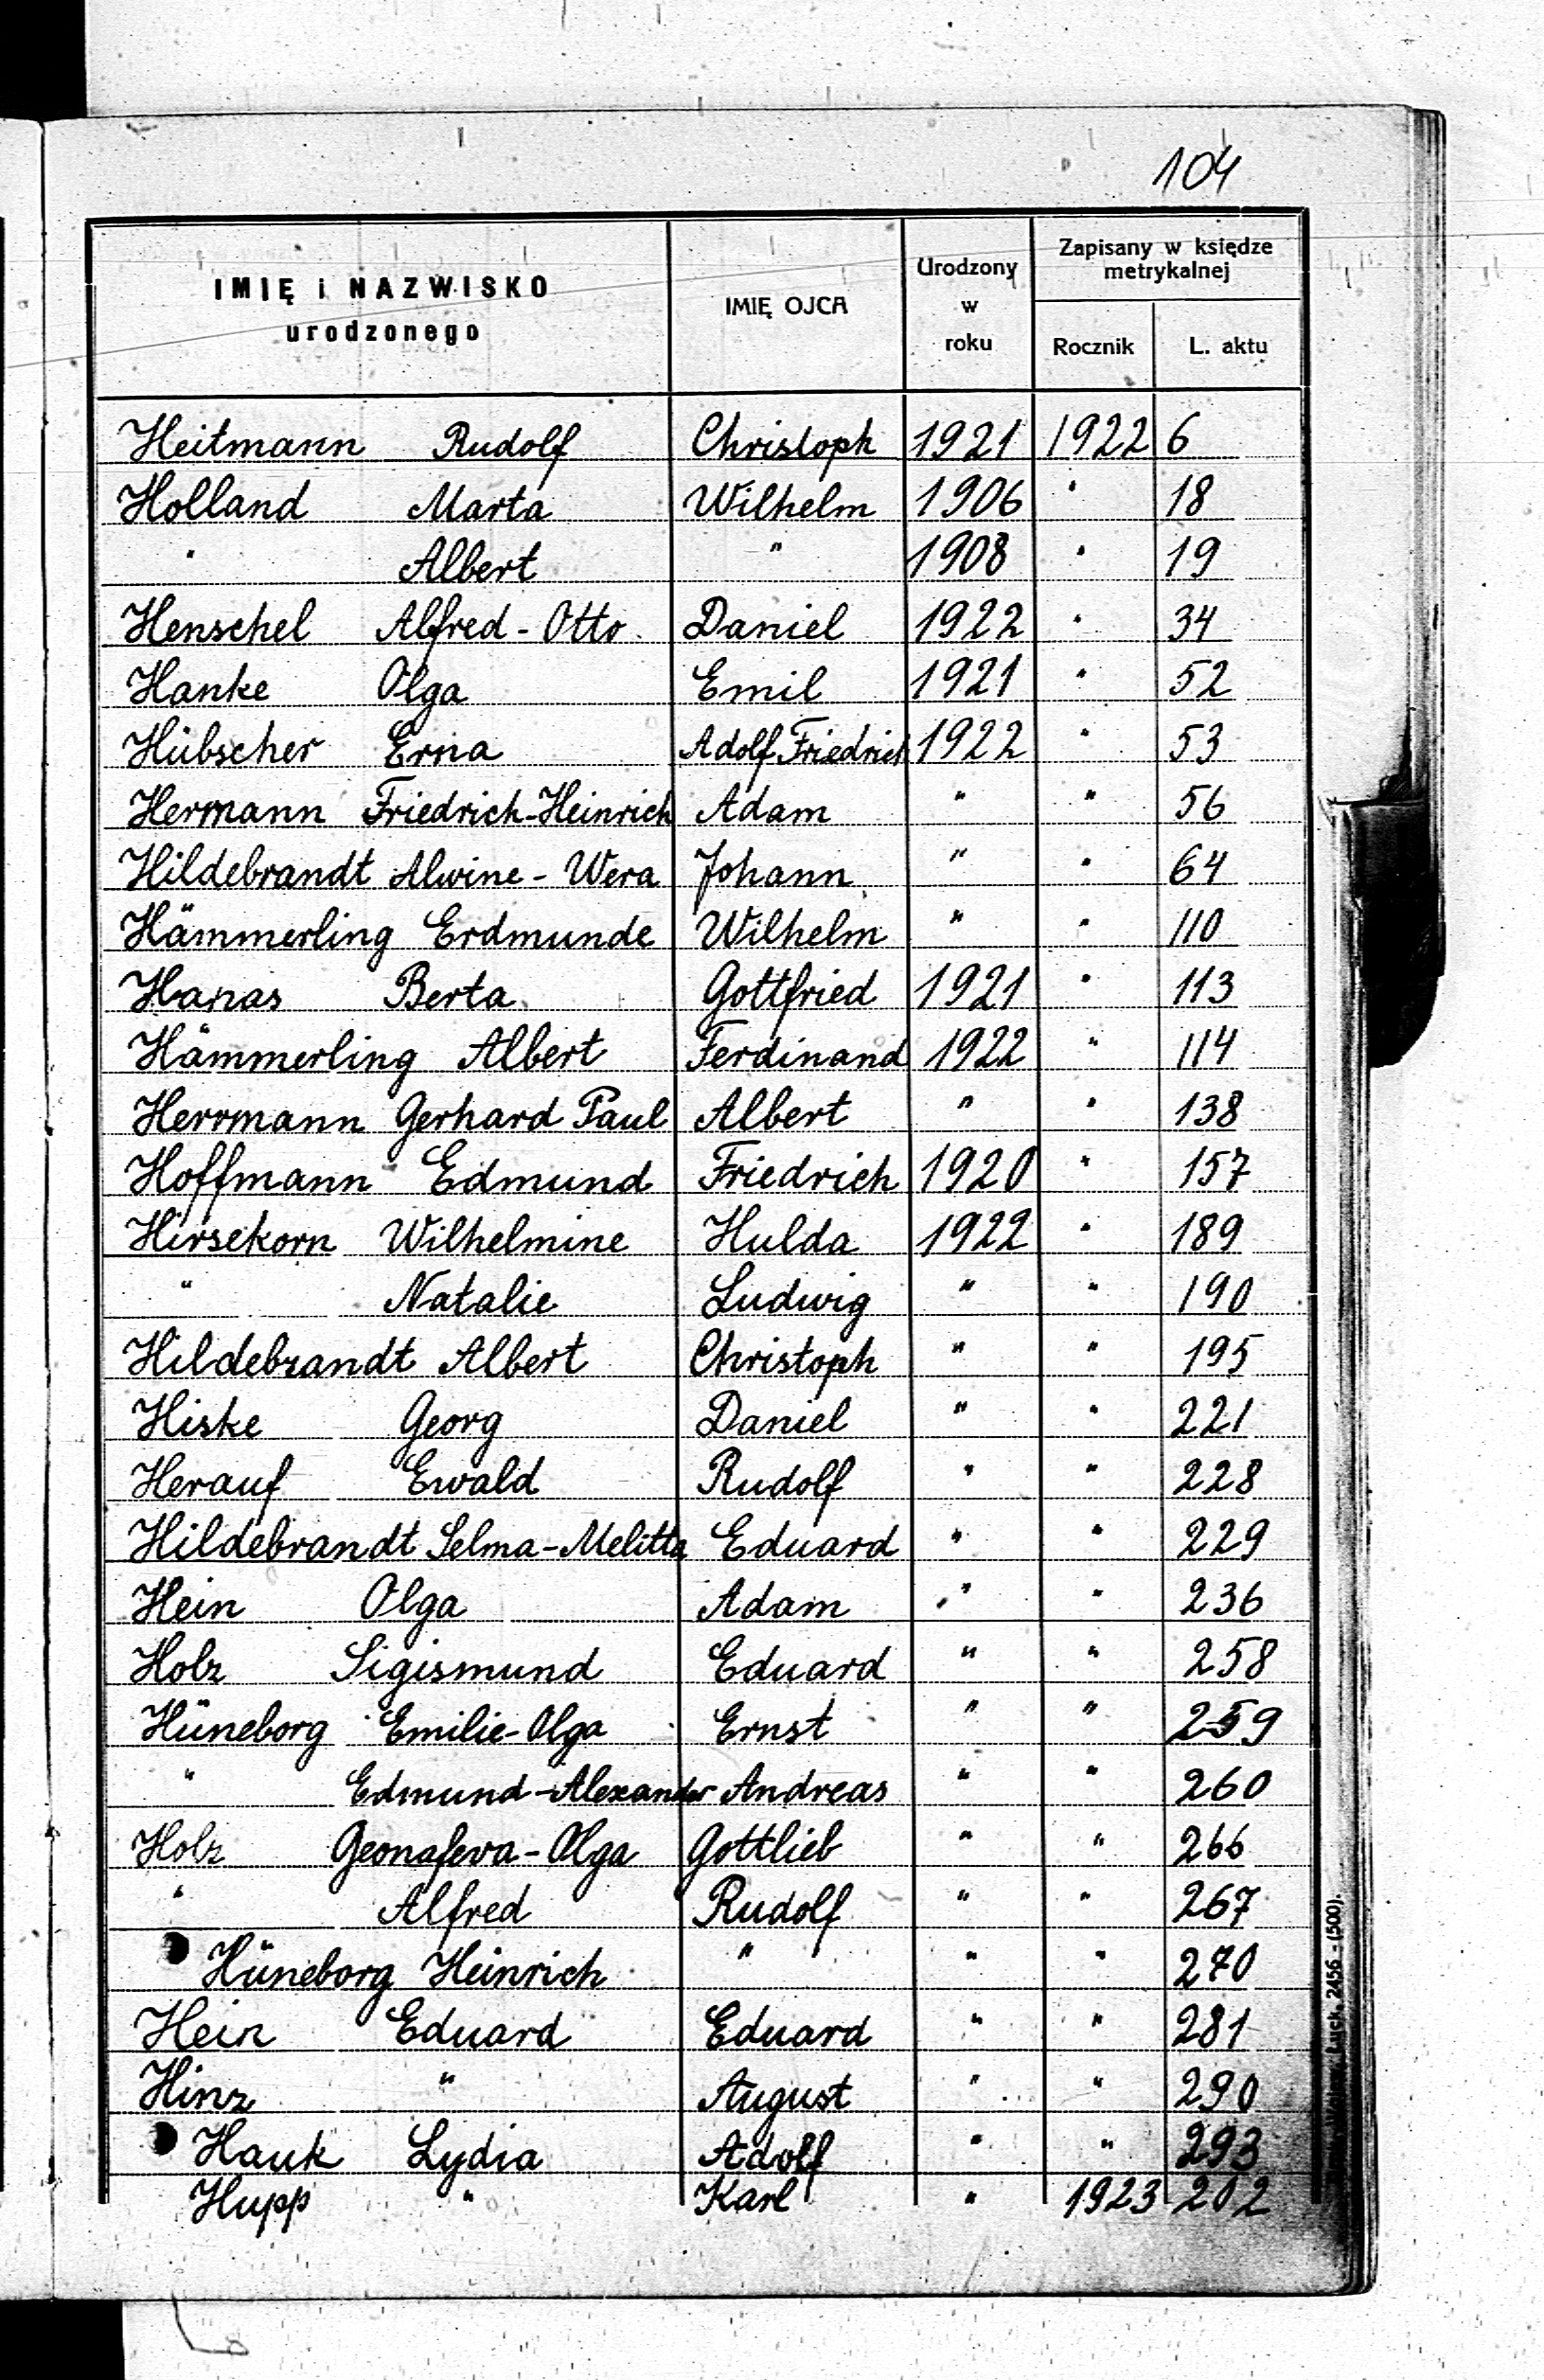 104
IMIĘ i NAZWISKO urodzonego IMIĘ OJCA Urodzony w roku Zapisany w księdze metrykalnej
Rocznik L. aktu
Heitmann Rudolf Christoph 1921 1922 6
Holland Marta Wilhelm 1906 " 18
" Albert " 1908 " 19
Henschel Alfred-Otto Daniel 1922 " 34
Hanke Olga Emil 1921 " 52
Hübscher Erna Adolf Friedrich 1922 " 53
Hermann Friedrich-Heinrich Adam " " 56
Hildebrandt Alwine-Wera Johann " " 64
Hämmerling Erdmunde Wilhelm " " 110
Hanas Berta Gottfried 1921 " 113
Hämmerling Albert Ferdinand 1922 " 114
Herrmann Gerhard Paul Albert " " 138
Hoffmann Edmund Friedrich 1920 " 157
Hirsekorn Wilhelmine Hulda 1922 " 189
" Natalie Ludwig " " 190
Hildebrandt Albert Christoph " " 195
Hiske Georg Daniel " " 221
Herauf Ewald Rudolf " " 228
Hildebrandt Selma-Melitta Eduard " " 229
Hein Olga Adam " " 236
Holz Sigismund Eduard " " 258
Hüneborg Emilie-Olga Ernst " " 259
" Edmund-Alexander Andreas " " 260
Holz Geonafeva-Olga Gottlieb " " 266
" Alfred Rudolf " " 267
Hüneborg Heinrich " " " 270
Hein Eduard Eduard " " 281
Hinz " August " " 290
Hauk Lydia Adolf " " 293
Hupp " Karl " 1923 202
Łuck. 2456 - (500).